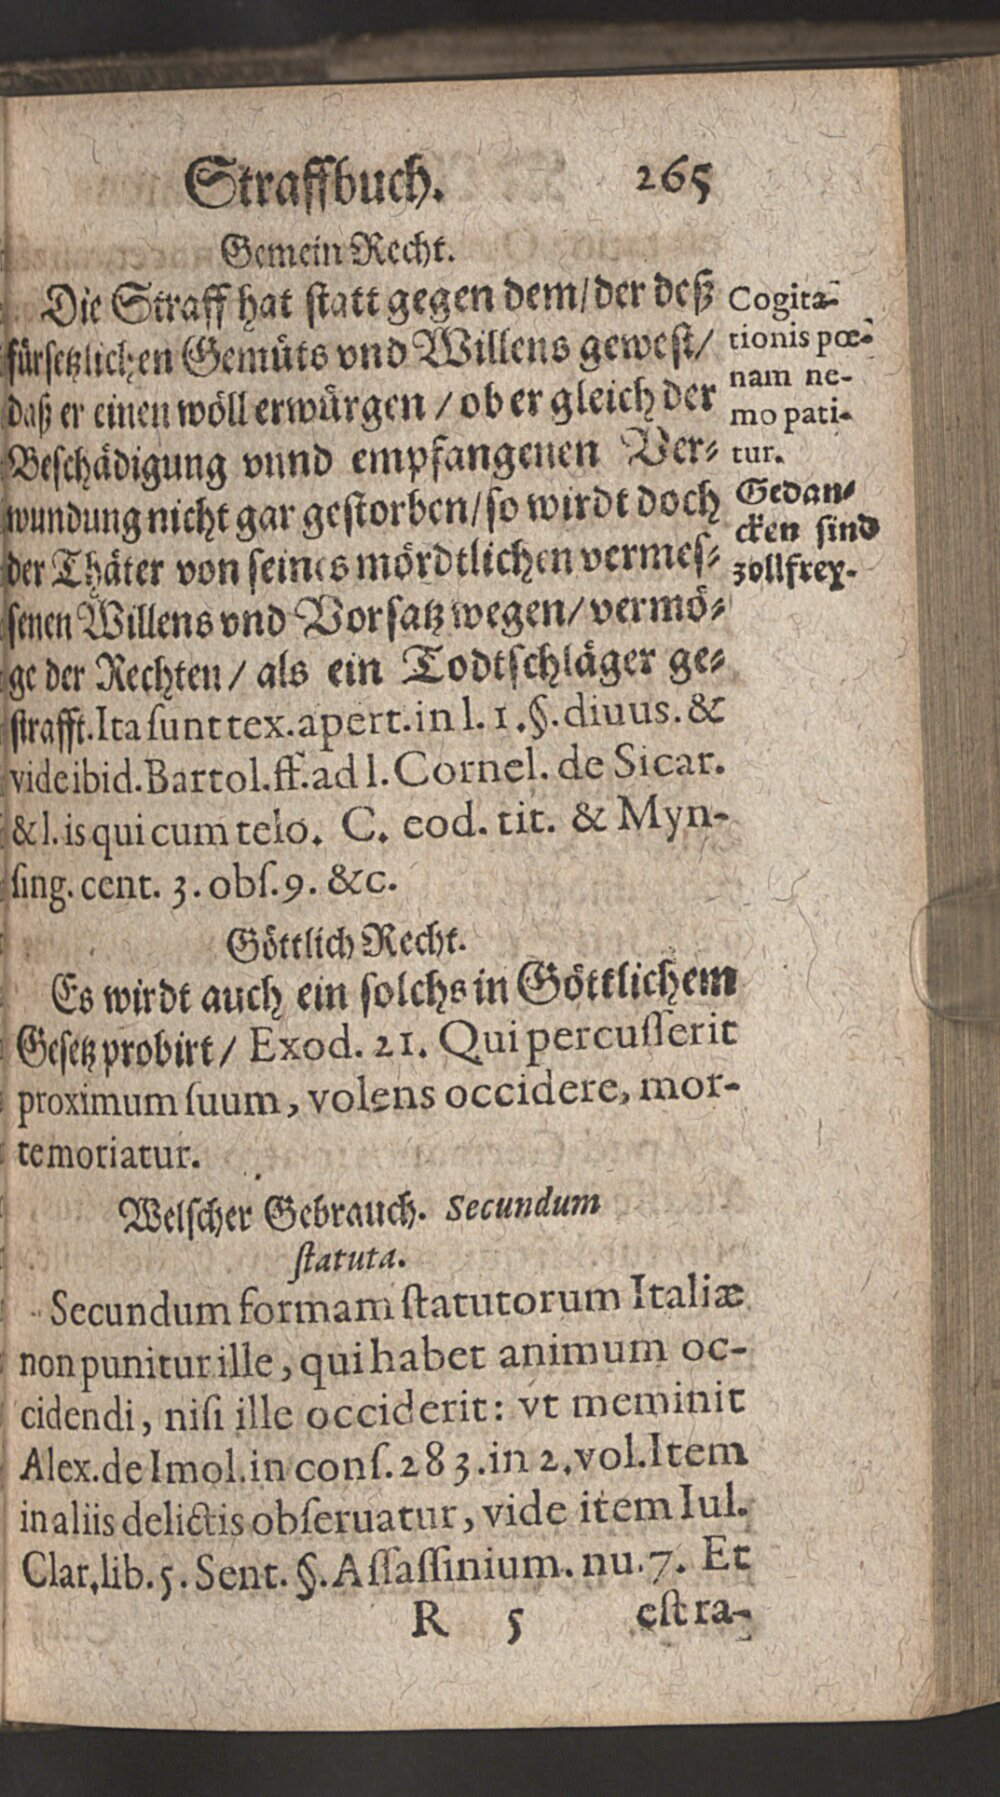 Straffbuch. 265
Gemein Recht.
Die Straff hat statt gegen dem/ der deß
fürsetzlichen Gemüts vnd Willens gewest/
daß er einen wöll erwürgen / ob er gleich der
Beschädigung vnnd empfangenen Ver-
wundung nicht gar gestorben/ so wirdt doch
der Thäter von seines mördtlichen vermes-
senen Willens vnd Vorsatz wegen/ vermö-
ge der Rechten / als ein Todtschläger ge-
strafft. Ita ſunt tex. apert. in l. 1. §. diuus. &
vide ibid. Bartol. ff. ad l. Cornel. de Sicar.
& l. is qui cum telo. C. eod. tit. & Myn-
ſing. cent. 3. obſ. 9. &c.
Cogita-
tionis pœ-
nam ne-
mo pati-
tur.
Gedan-
cken sind
zollfrey.
Göttlich Recht.
Es wirdt auch ein solchs in Göttlichem
Gesetz probirt / Exod. 21. Qui percuſſerit
proximum ſuum, volens occidere, mor-
te moriatur.
Welscher Gebrauch. Secundum
ſtatuta.
Secundum formam ſtatutorum Italiæ
non punitur ille, qui habet animum oc-
cidendi, niſi ille occiderit: vt meminit
Alex. de Imol. in conſ. 283. in 2. vol. Item
in aliis delictis obſeruatur, vide item Iul.
Clar. lib. 5. Sent. §. Aſſaſſinium. nu. 7. Et
R 5 eſt ra-